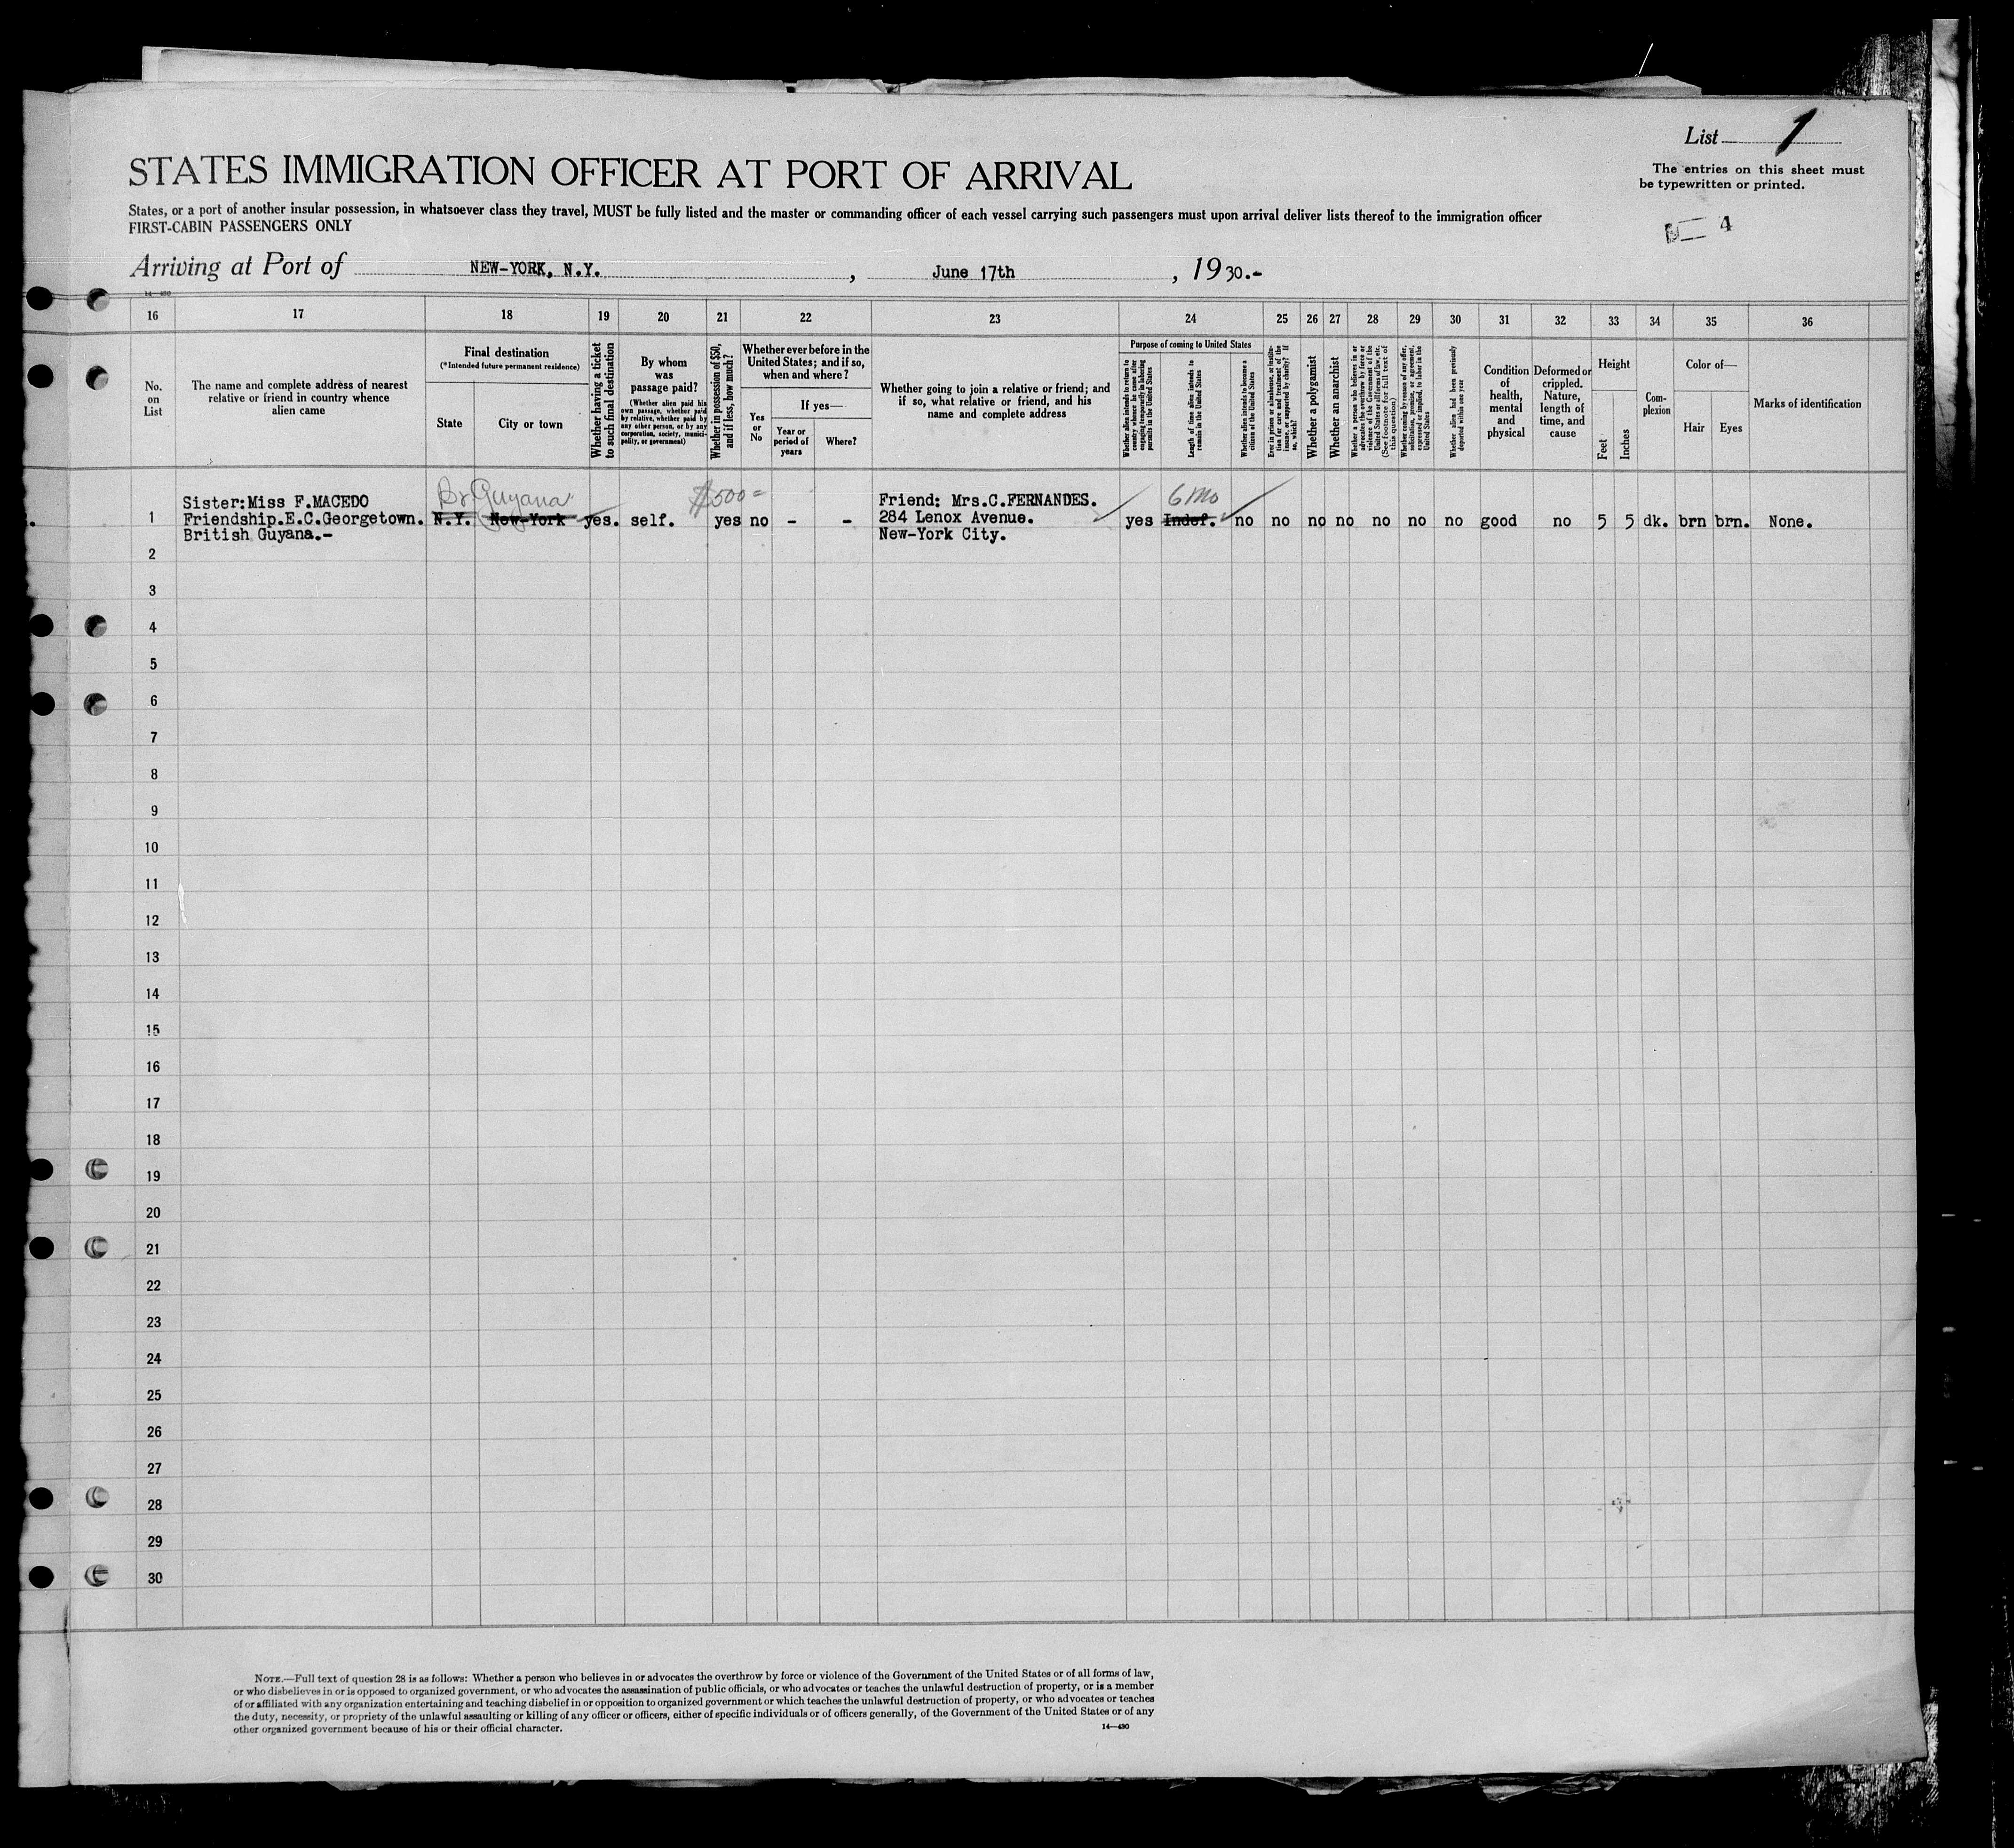 List 1
The entries on this sheet must
be typewritten or printed.
4
STATES IMMIGRATION OFFICER AT PORT OF ARRIVAL
States, or a port of another insular possession, in whatsoever class they travel, MUST be fully listed and the master or commanding officer of each vessel carrying such passengers must upon arrival deliver lists thereof to the immigration officer
FIRST-CABIN PASSENGERS ONLY
Arriving at Port of NEW-YORK, N.Y. , June 17th , 1930.-
14-430
16 17 18 19 20 21 22 23 24 25 26 27 28 29 30 31 32 33 34 35 36
No.
on
List
The name and complete address of nearest
relative or friend in country whence
alien came
Final destination
(*Intended future permanent residence)
State
City or town
Whether having a ticket
to such final destination
By whom
was
passage paid?
(Whether alien paid his
own passage, whether paid
by relative, whether paid by
any other person, or by any
corporation, society, munici-
pality, or government)
Whether in possession of $50,
and if less, how much?
Whether ever before in the
United States; and if so,
when and where?
Yes
or
No
If yes—
Year or
period of
years
Where?
Whether going to join a relative or friend; and
if so, what relative or friend, and his
name and complete address
Purpose of coming to United States
Whether alien intends to return to
country whence he came after
engaging temporarily in laboring
pursuits in the United States
Length of time alien intends to
remain in the United States
Whether alien intends to become a
citizen of the United States
Ever in prison or almshouse, or institu-
tion for care and treatment of the
insane, or supported by charity? If
so, which?
Whether a polygamist
Whether an anarchist
Whether a person who believes in or
advocates the overthrow by force or
violence of the Government of the
United States or all forms of law, etc.
(See footnote for full text of
this question)
Whether coming by reason of any offer,
solicitation, promise, or agreement,
expressed or implied, to labor in the
United States
Whether alien had been previously
deported within one year
Condition
of
health,
mental
and
physical
Deformed or
crippled.
Nature,
length of
time, and
cause
Height
Feet
Inches
Com-
plexion
Color of—
Hair
Eyes
Marks of identification
Br Guyana $500= 6 mo
Sister:Miss F.MACEDO
Friendship.E.C.Georgetown.
British Guyana.-
1 N.Y. New-York yes. self. yes no - -
Friend: Mrs.C.FERNANDES.
284 Lenox Avenue.
New-York City.
yes Indef. no no no no no no no good no 5 5 dk. brn brn. None.
2
3
4
5
6
7
8
9
10
11
12
13
14
15
16
17
18
19
20
21
22
23
24
25
26
27
28
29
30
NOTE.—Full text of question 28 is as follows: Whether a person who believes in or advocates the overthrow by force or violence of the Government of the United States or of all forms of law,
or who disbelieves in or is opposed to organized government, or who advocates the assassination of public officials, or who advocates or teaches the unlawful destruction of property, or is a member
of or affiliated with any organization entertaining and teaching disbelief in or opposition to organized government or which teaches the unlawful destruction of property, or who advocates or teaches
the duty, necessity, or propriety of the unlawful assaulting or killing of any officer or officers, either of specific individuals or of officers generally, of the Government of the United States or of any
other organized government because of his or their official character.
14—430